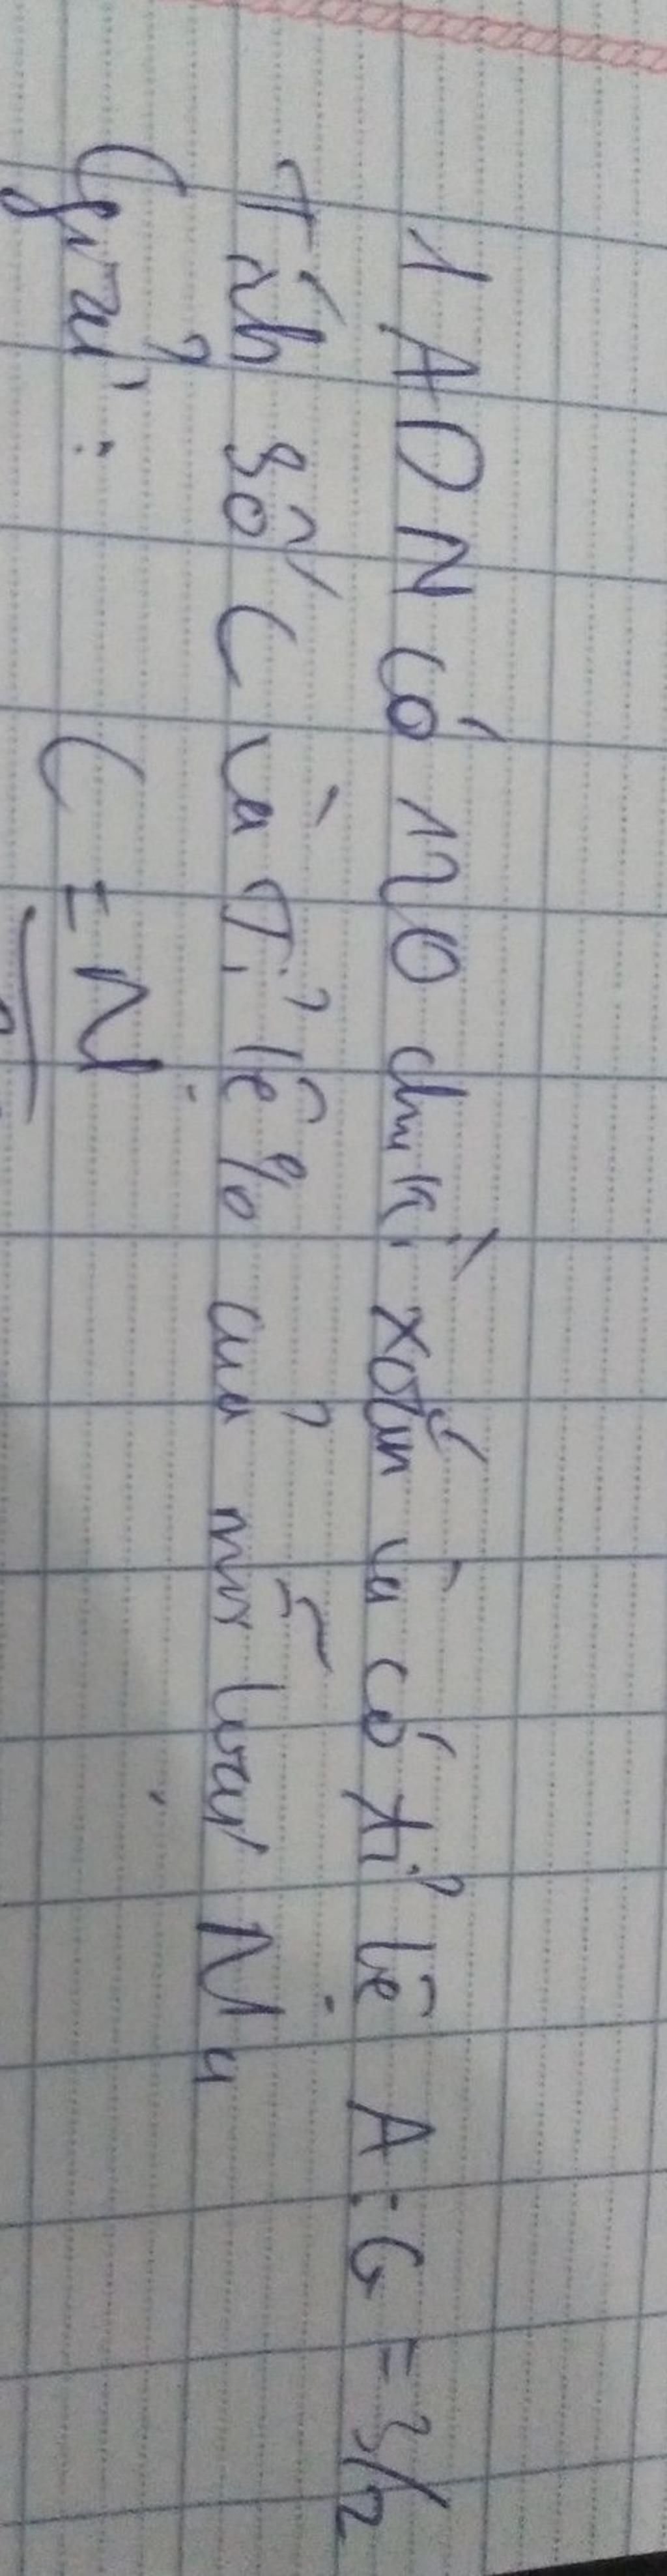 1 ADN có 120 chu kì xoắn và có tỉ lệ A : G = 3/2
Tính số C và Tỉ lệ % của mỗi loại Nu
Giải :
C = N